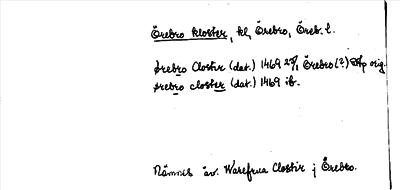 Örebro kloster, kl, Örebro, Öreb. l.
Ørebro Closter (dat.) 1469 27/1 Örebro (?) Dep orig.
Ørebro closter (dat.) 1469 ib.
Nämnes äv. Warefrua Clostir j Örebro.